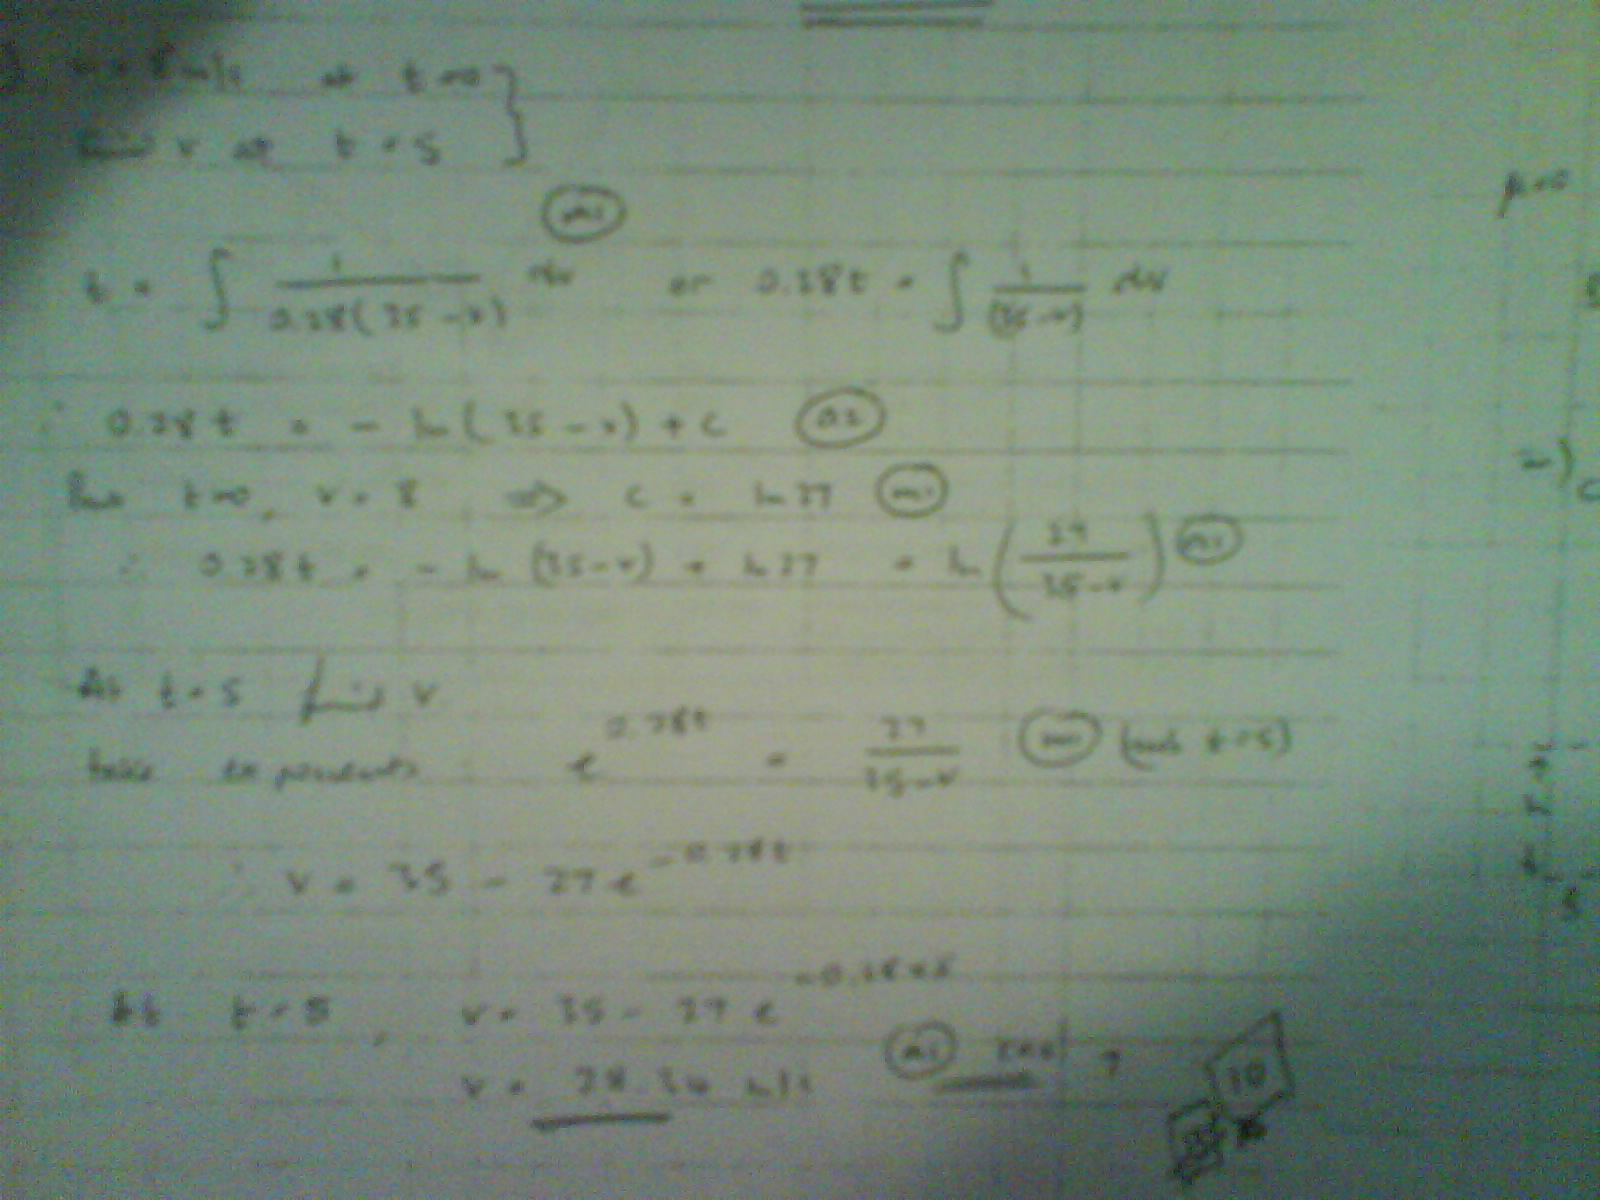 v = 8 m/s at t=0 }
Find v at t = 5
(M1)
t = ∫ 1/(0.28(35-v)) dv or 0.28t = ∫ 1/(35-v) dv
∴ 0.28t = - ln(35-v) + c (A2)
But t=0, v=8 => c = ln 27 (M1)
∴ 0.28t = - ln (35-v) + ln 27 = ln (27/(35-v)) (A1)
At t=5 find v
take exponents e^0.28t = 27/(35-v) (M1) (sub t=5)
∴ v = 35 - 27e^-0.28t
At t=5, v = 35 - 27e^-0.28×5
v = 28.34 m/s (A1) 7
10